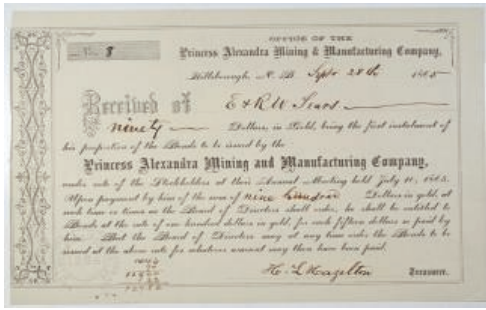 OFFICE OF THE
No. 8 Princess Alexandra Mining & Manufacturing Company,
Hillsborough N. B. Septr 28th 1865
Received of E & R W Sears
ninety Dollars, in Gold, being the first instalment of
his proportion of the Bonds to be issued by the
Princess Alexandra Mining and Manufacturing Company,
under vote of the Stockholders at their Annual Meeting held July 11, 1865.
Upon payment by him of the sum of nine hundred Dollars in gold, at
such time or times as the Board of Directors shall order, he shall be entitled to
Bonds at the rate of one hundred dollars in gold, for each fifteen dollars so paid by
him. But the Board of Directors may at any time order the Bonds to be
issued at the above rate for whatever amount may then have been paid.
H. L Hazelton Treasurer.